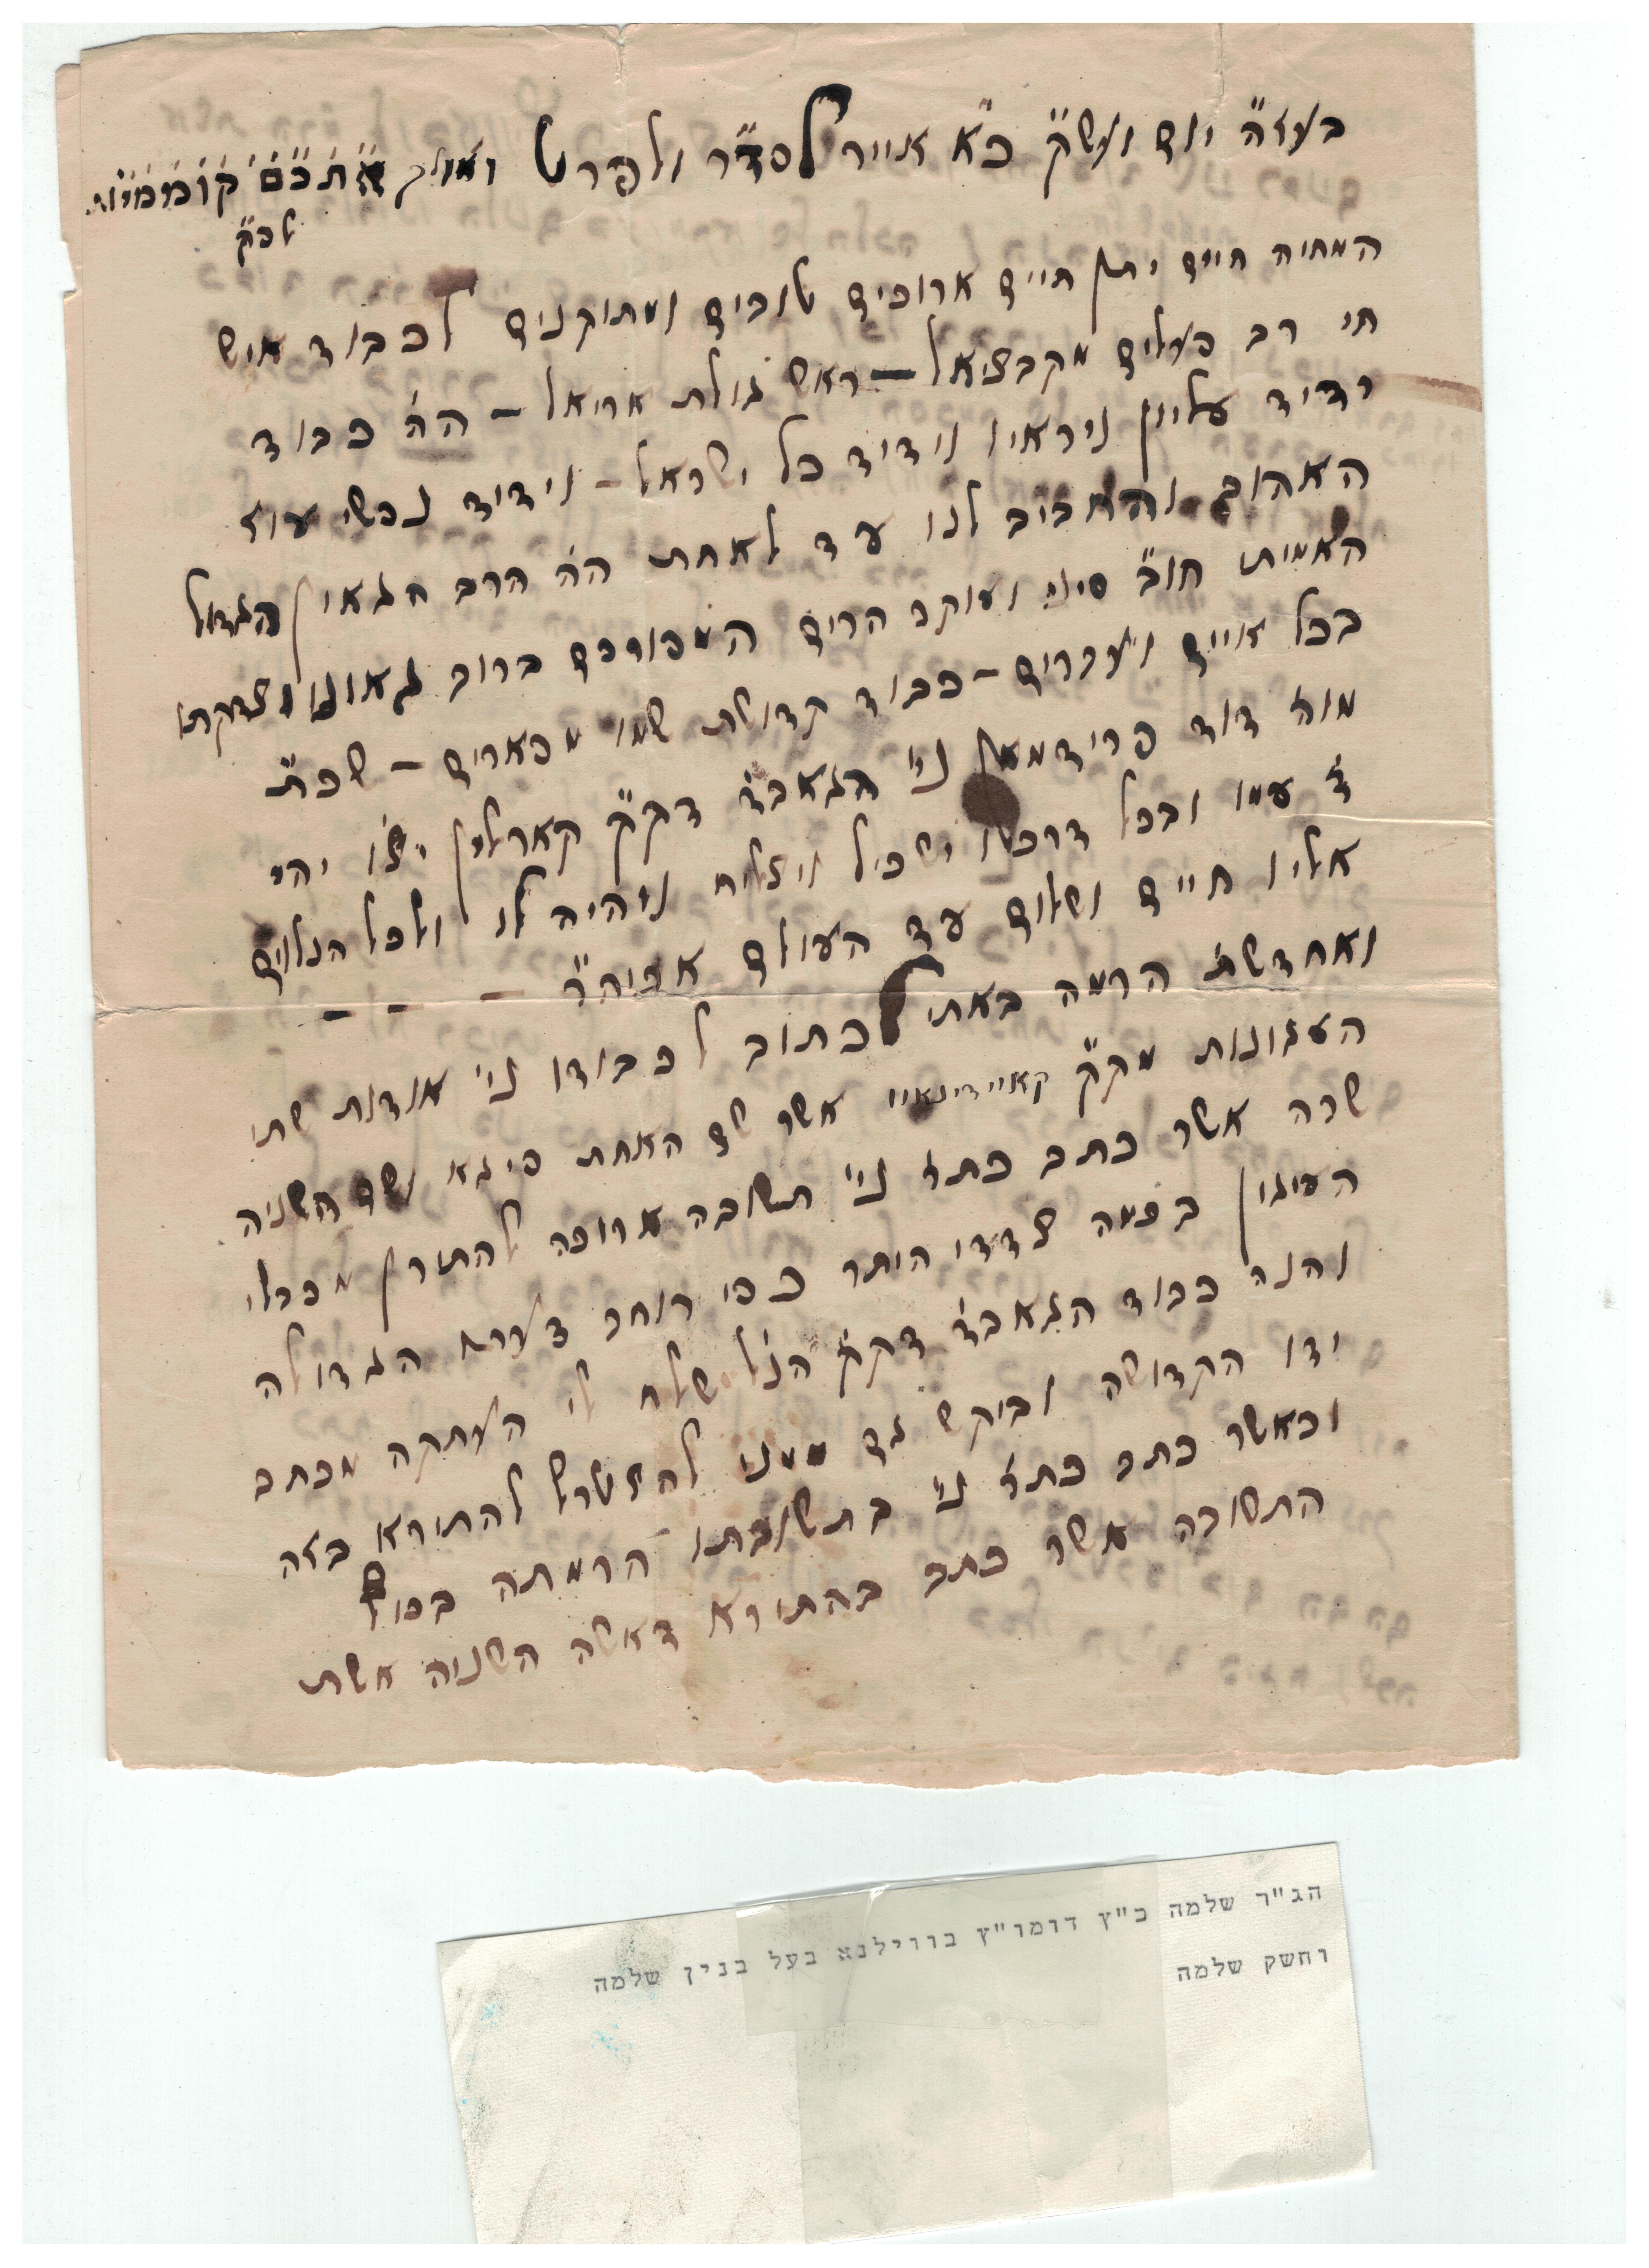 בעזה"י יום ועש"ק כ"א אייר לסד"ר ולפרט ואולך אתכם קוממיות
לפ"ק
המחיה חיים יתן חיים ארוכים טובים ומתוקנים לכבוד איש
חי רב פעלים מקבציאל – ראש גולת אריאל – ה"ה כבוד
ידיד עליון ויראיו וידיד כל ישראל – וידיד נפשי עוז
האהוב והחביב לנו עד לאחת ה"ה הרב הגאון הגדול
האמיתי חו"ב סיני ועוקר הרים המפורסם ברוב גאונו וצדקתו
בכל איים ועברים – כבוד קדושת שמו מפארים – שכ"ת
מו"ה דוד פרידמאן נ"י הגאב"ד דק"ק קארלין יצ"ו יהי
ד' עמו ובכל דרכיו ישכיל ויצליח ויהיה לו ולכל הנלוים
אליו חיים ושלום עד העולם אכיה"ר – – –
ואחדשת הרמה באתי לכתוב לכבודו נ"י אודות שתי
העגונות מק"ק קאיידינאוו אשר שם האחת פיגא ושם השניה
שרה אשר כתב כת"ר נ"י תשובה ארוכה להתירן מכבלי
העיגון בכמה צדדי היתר כפי רוחב דעתו הגדולה
והנה כבוד הגאב"ד דק"ק הנ"ל שלח לי העתקה מכתב
ידו הקדושה וביקש גם ממני להצטרף להתירא בזה
וכאשר כתב כת"ר נ"י בתשובתו הרמתה בסוף
התשובה אשר כתב בהתירא דאשה השניה אשת
הג"ר שלמה כ"ץ דומו"ץ בווילנא בעל בנין שלמה
וחשק שלמה